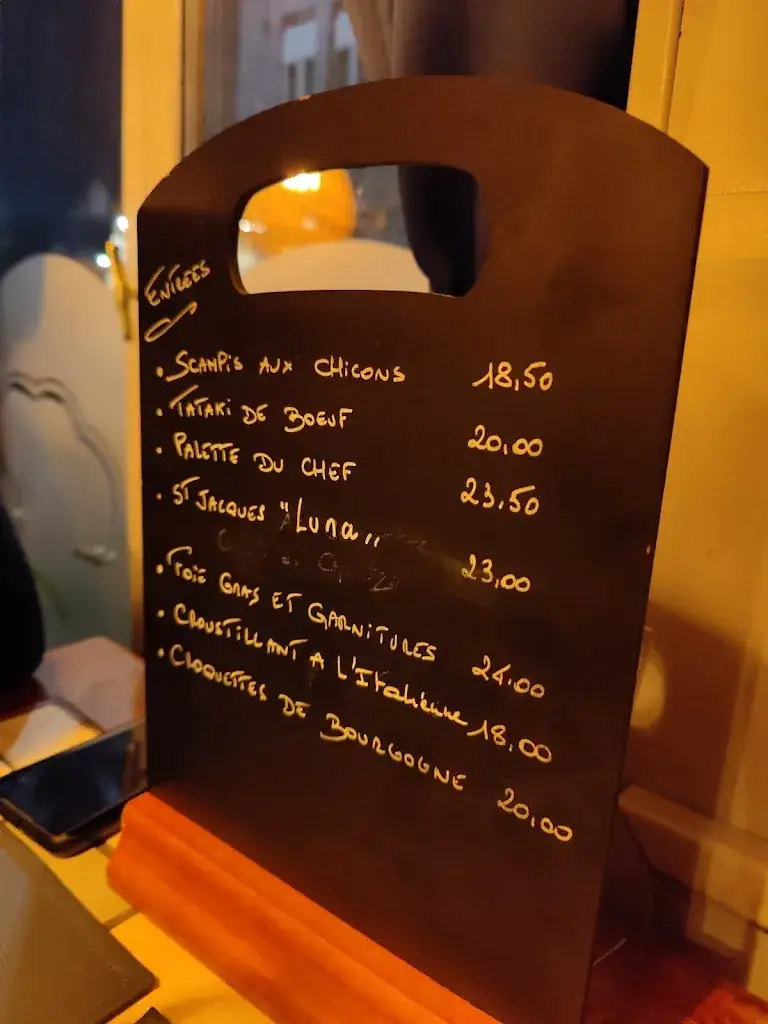 ENTREES
• SCAMPIS AUX CHICONS 18,50
• TATAKI DE BOEUF 20,00
• PALETTE DU CHEF 23,50
• ST JACQUES "Luna" 23,00
• FOIE GRAS ET GARNITURES 24,00
• CROUSTILLANT A L'Italienne 18,00
• CROQUETTES DE BOURGOGNE 20,00